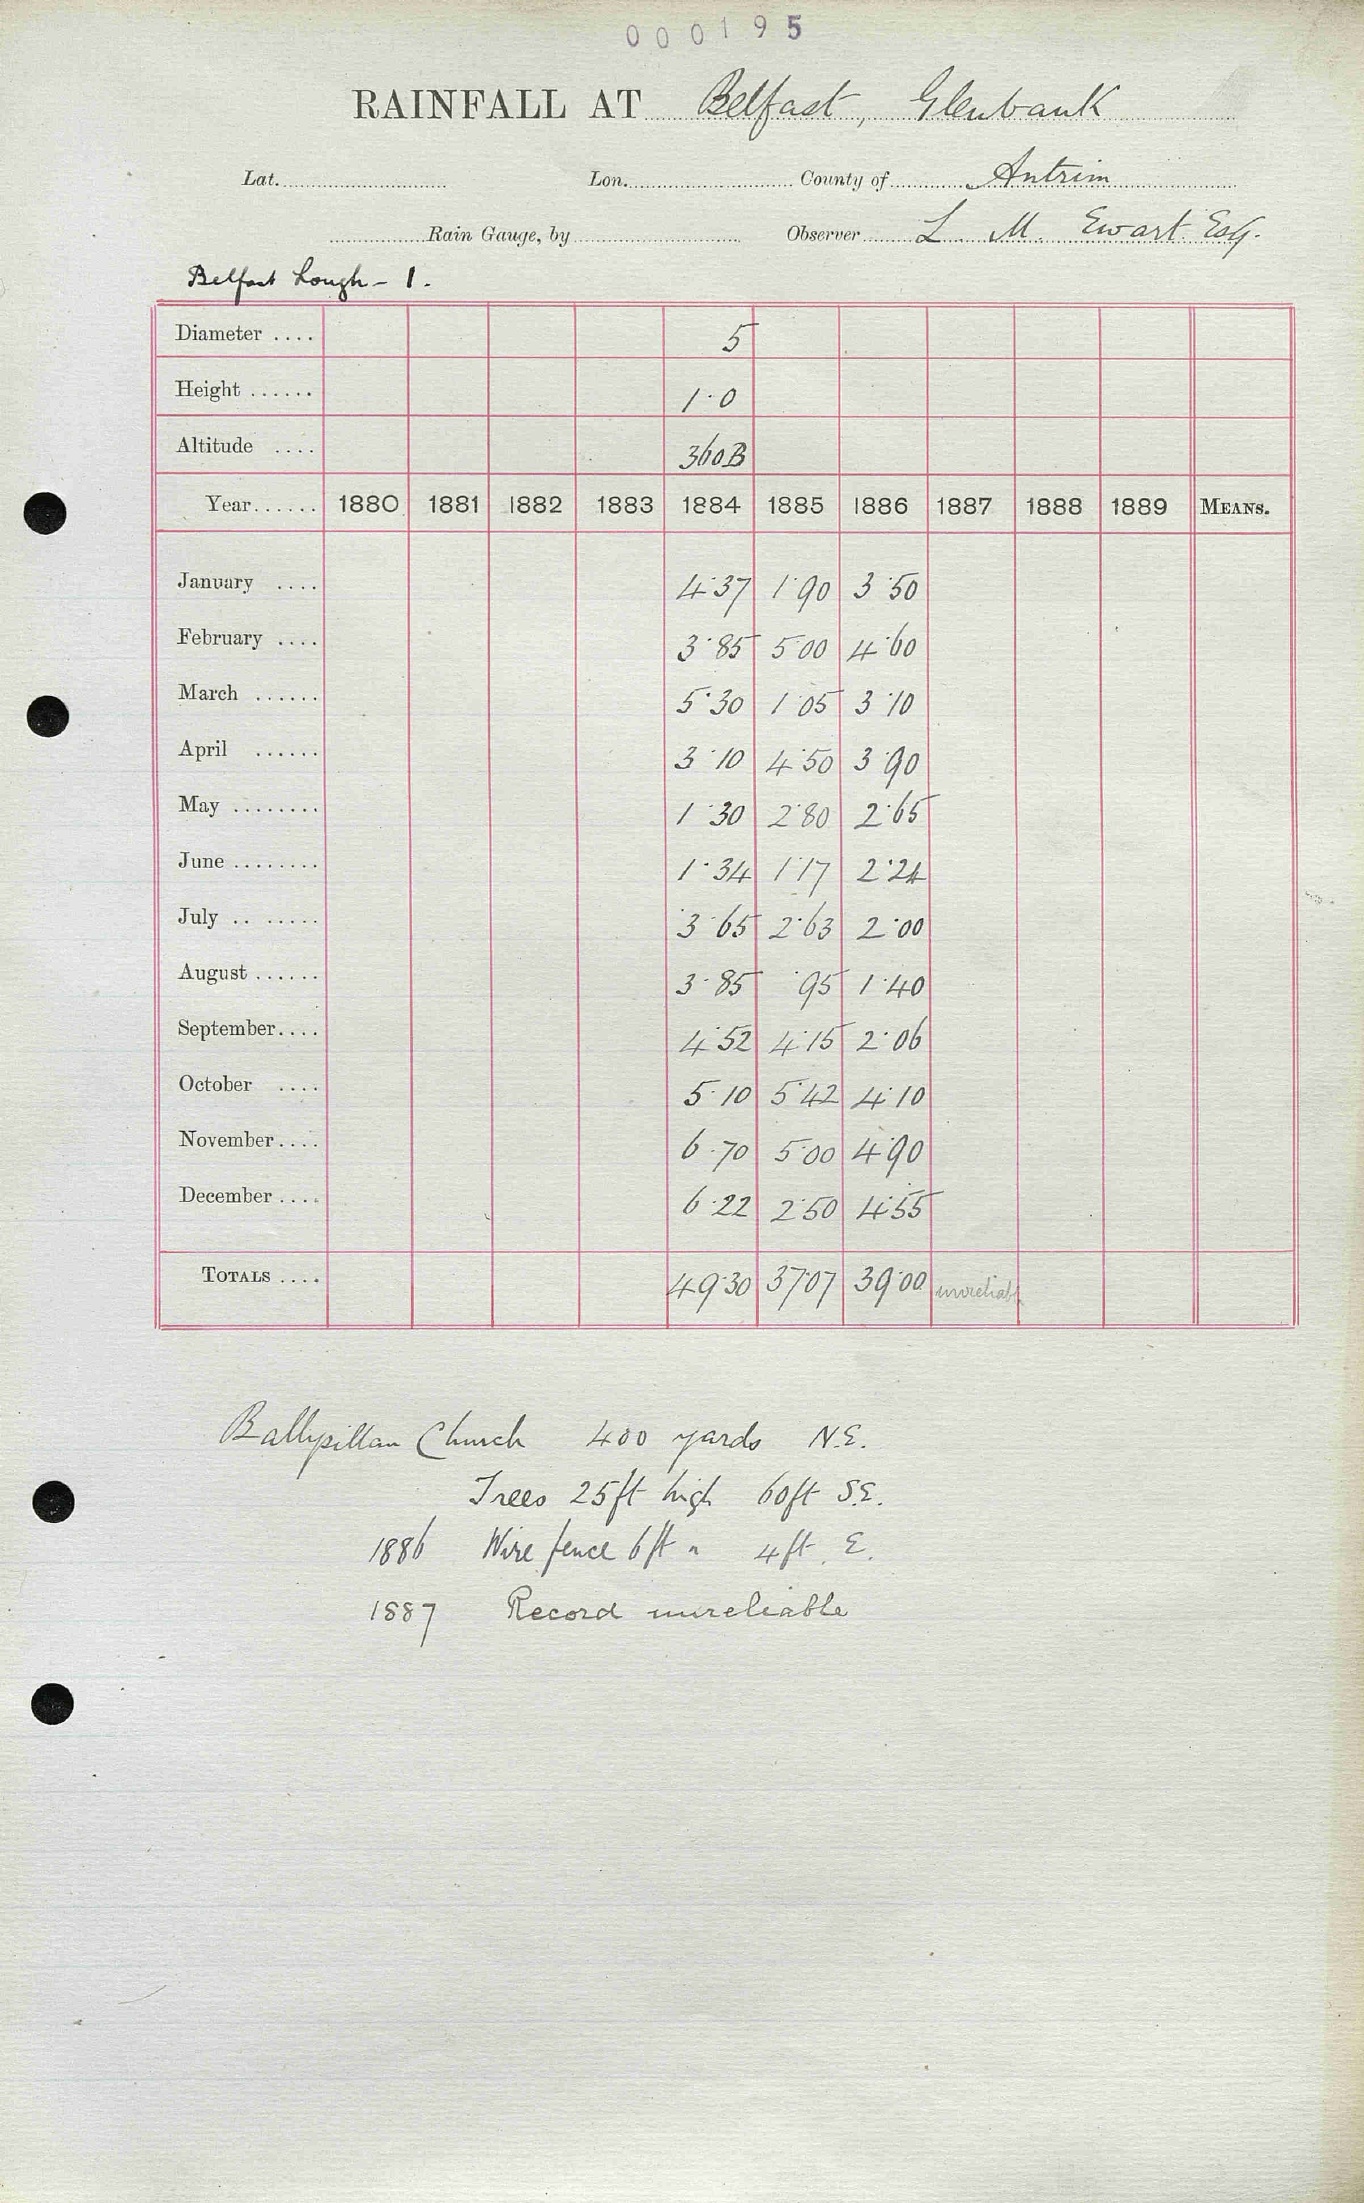 000195
RAINFALL AT Belfast, Glenbank
Lat. Lon. County of Antrim
Rain Gauge, by Observer L. M. Ewart Esq.
Belfast Lough - 1.
Diameter .... 5
Height ...... 1·0
Altitude .... 360B
Year...... 1880 1881 1882 1883 1884 1885 1886 1887 1888 1889 MEANS.
January .... 4·37 1·90 3·50
February .... 3·85 5·00 4·60
March ...... 5·30 1·05 3·10
April ...... 3·10 4·50 3·90
May ........ 1·30 2·80 2·65
June ........ 1·34 1·17 2·24
July .. ..... 3·65 2·63 2·00
August ...... 3·85 ·95 1·40
September.... 4·52 4·15 2·06
October .... 5·10 5·42 4·10
November.... 6·70 5·00 4·90
December .... 6·22 2·50 4·55
TOTALS .... 49·30 37·07 39·00 unreliable
Ballysillan Church 400 yards N.E.
Trees 25ft high 60ft S.E.
1886 Wire fence 6ft " 4ft. E.
1887 Record unreliable